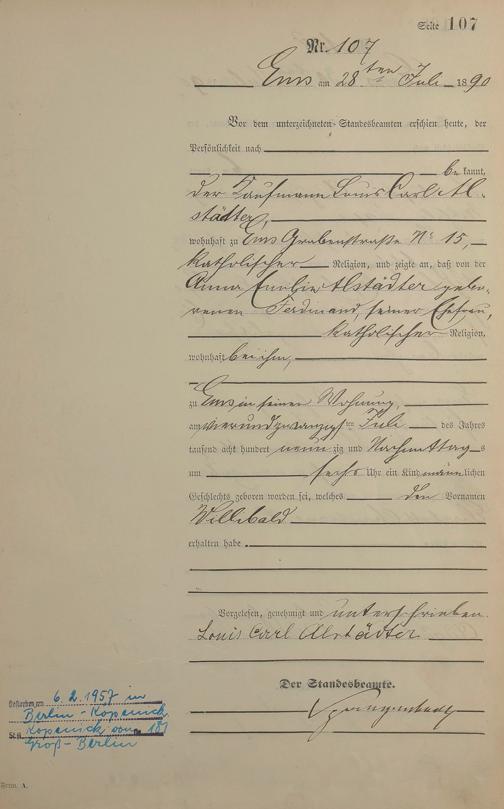 Seite 107
Nr. 107
Ems am 28ten Juli 1890
Vor dem unterzeichneten Standesbeamten erschien heute, der
Persönlichkeit nach
bekannt,
der Kaufmann Louis Carl Al-
städter,
wohnhaft zu Ems Grabenstraße No 15,
katholischer Religion, und zeigte an, daß von der
Anna Emilie Alstädter gebo-
renen Ferdinand, seiner Ehefrau,
katholischer Religion,
wohnhaft bei ihm,
zu Ems in seiner Wohnung,
am vierundzwanzigsten Juli des Jahres
tausend acht hundert neunzig und Nachmittags
um sechs Uhr ein Kind männlichen
Geschlechts geboren worden sei, welches den Vornamen
Willibald
erhalten habe.
Vorgelesen, genehmigt und unterschrieben
Louis Carl Alstädter
Der Standesbeamte.
Gestorben am 6.2.1957 in
Berlin-Köpenick
St.A. Köpenick von 187
Groß-Berlin
Form. A.